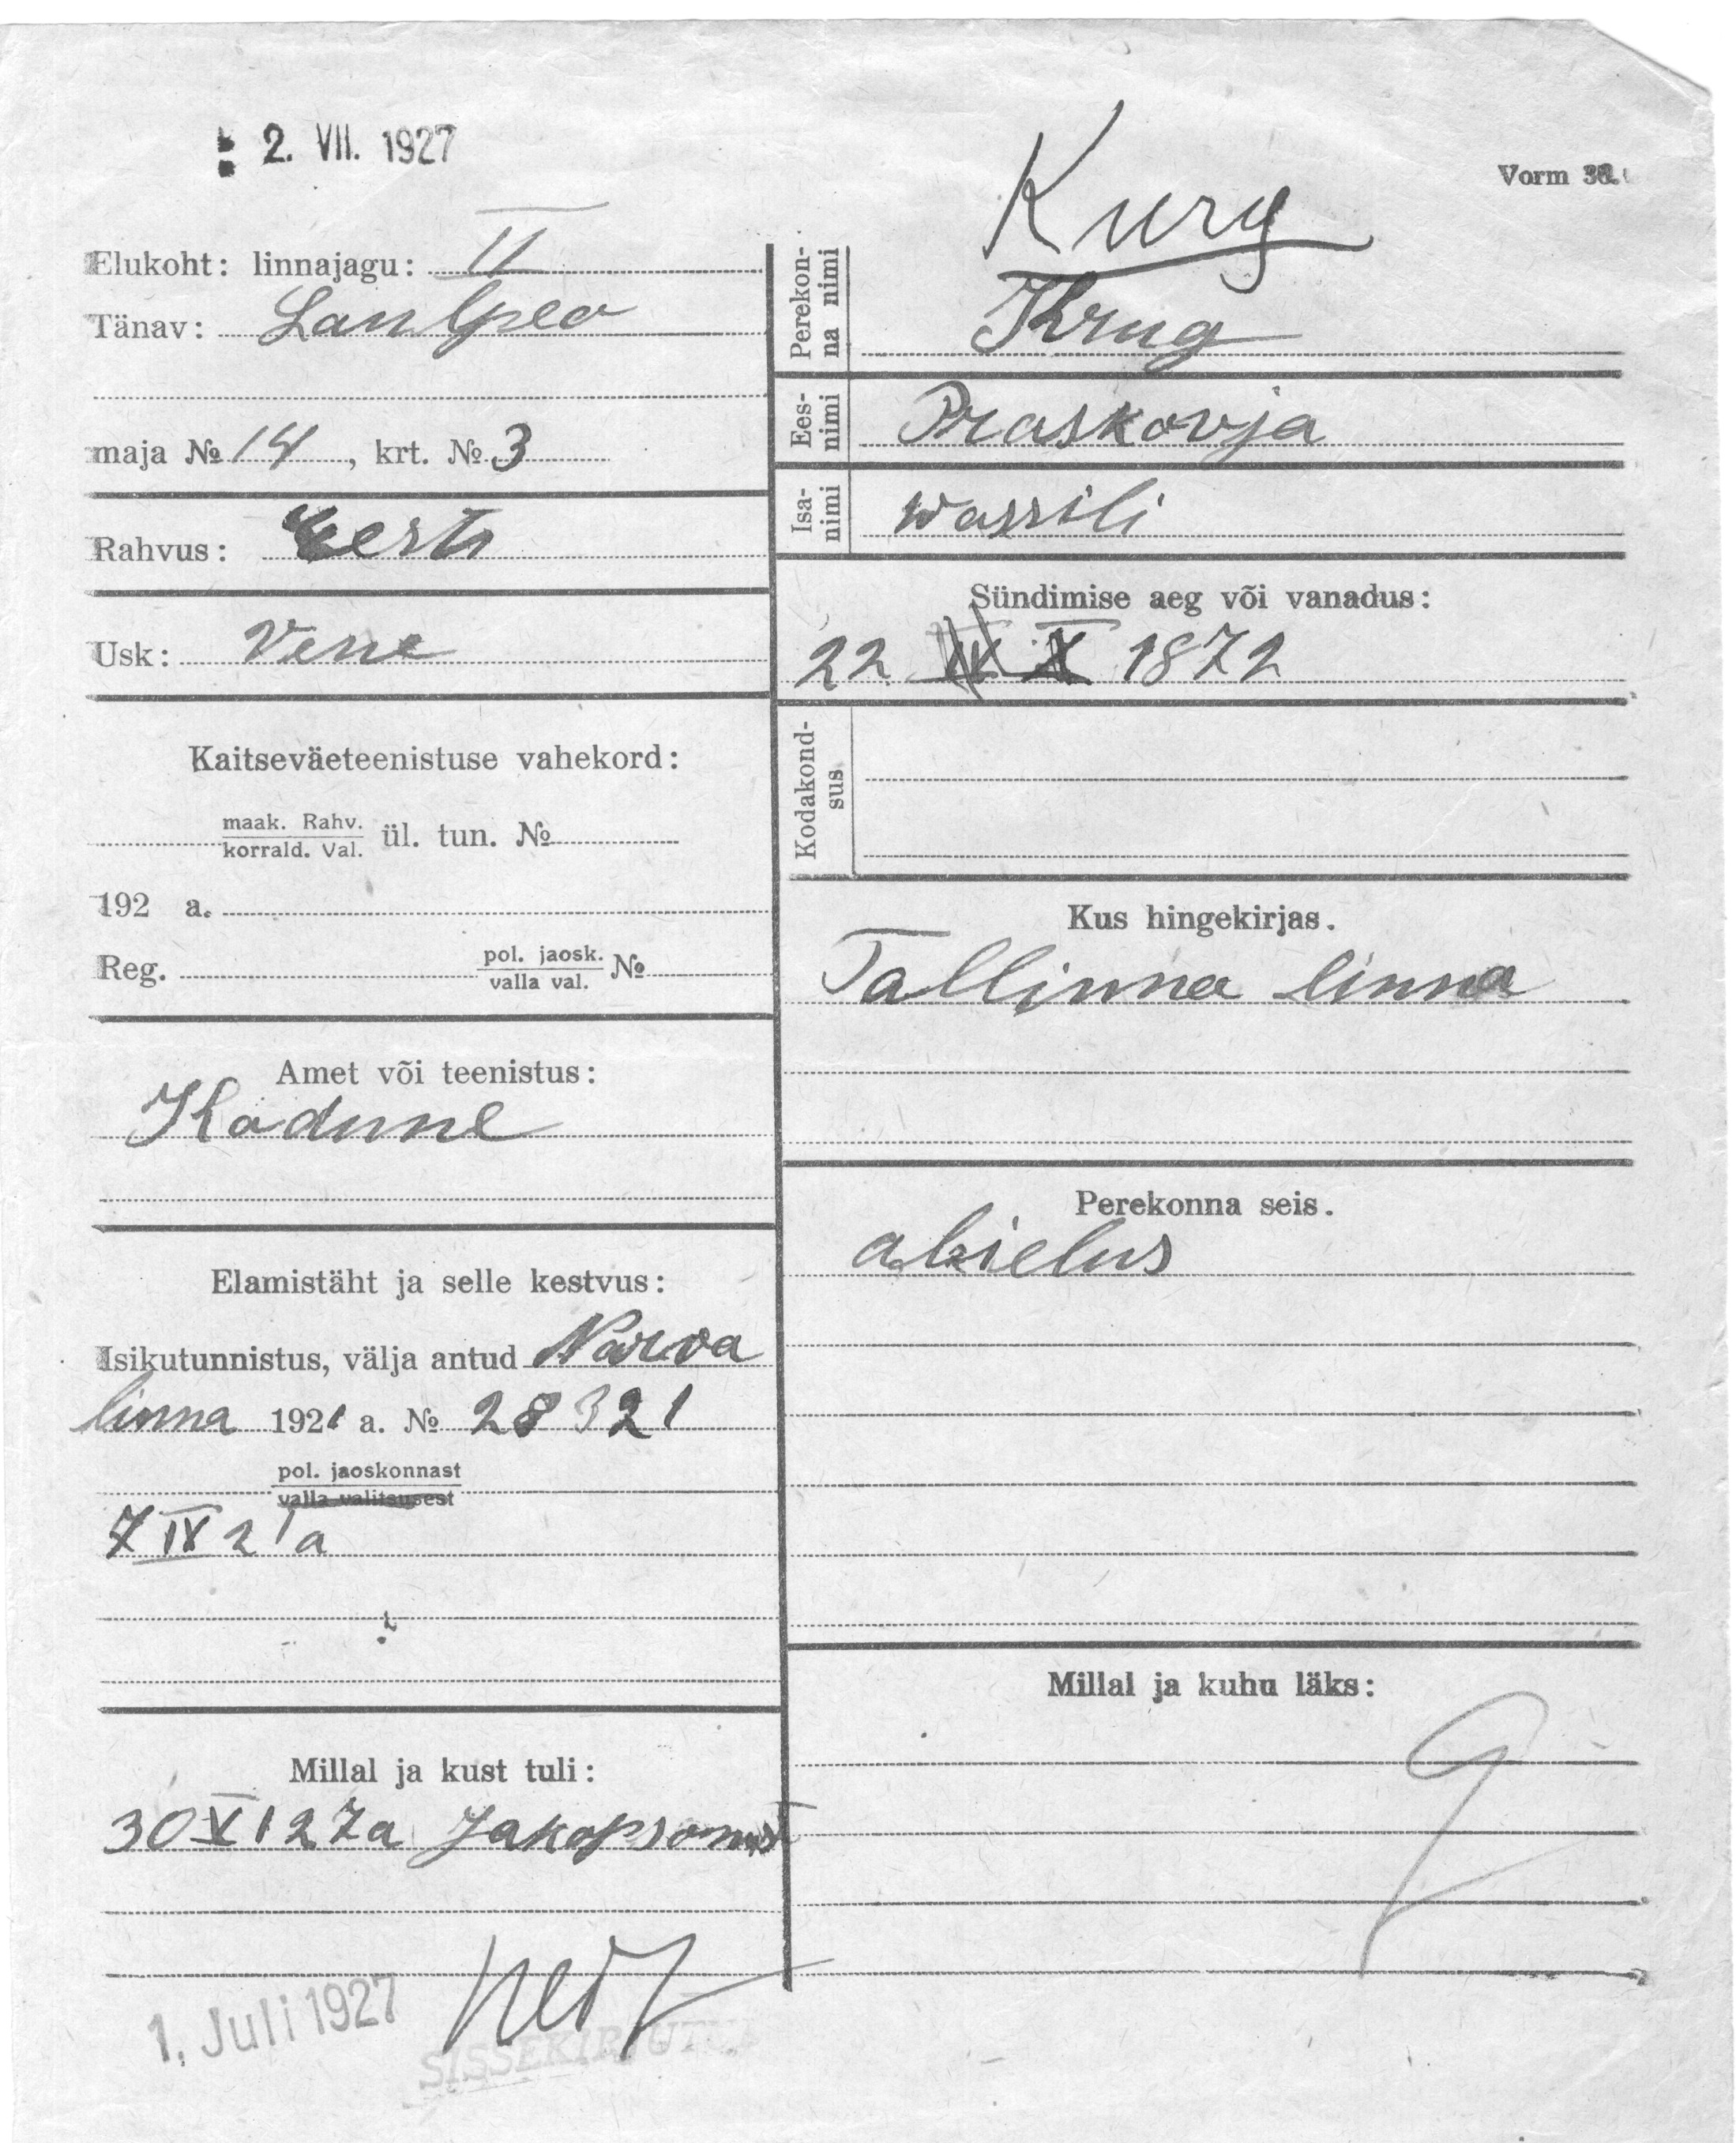 2. VII. 1927
Vorm 36.
Kurg
Elukoht: linnajagu: II
Tänav:
maja № 14, krt. № 3
Rahvus: Eesti
Usk: Vene
Kaitseväeteenistuse vahekord:
maak. Rahv.
korrald. Val. ül. tun. №
192 a.
Reg. pol. jaosk.
valla val. №
Amet või teenistus:
Elamistäht ja selle kestvus:
Isikutunnistus, välja antud Narva
linna 1921 a. № 28321
pol. jaoskonnast
valla valitsusest
7 IV 21a
Millal ja kust tuli:
30 VI 27a
1. Juli 1927
SISSEKIRJUTUD
Perekon-
na nimi Krug
Ees-
nimi Praskovja
Isa-
nimi Wassili
Sündimise aeg või vanadus:
22 IV X 1872
Kodakond-
sus
Kus hingekirjas.
Tallinna linna
Perekonna seis.
abielus
Millal ja kuhu läks: